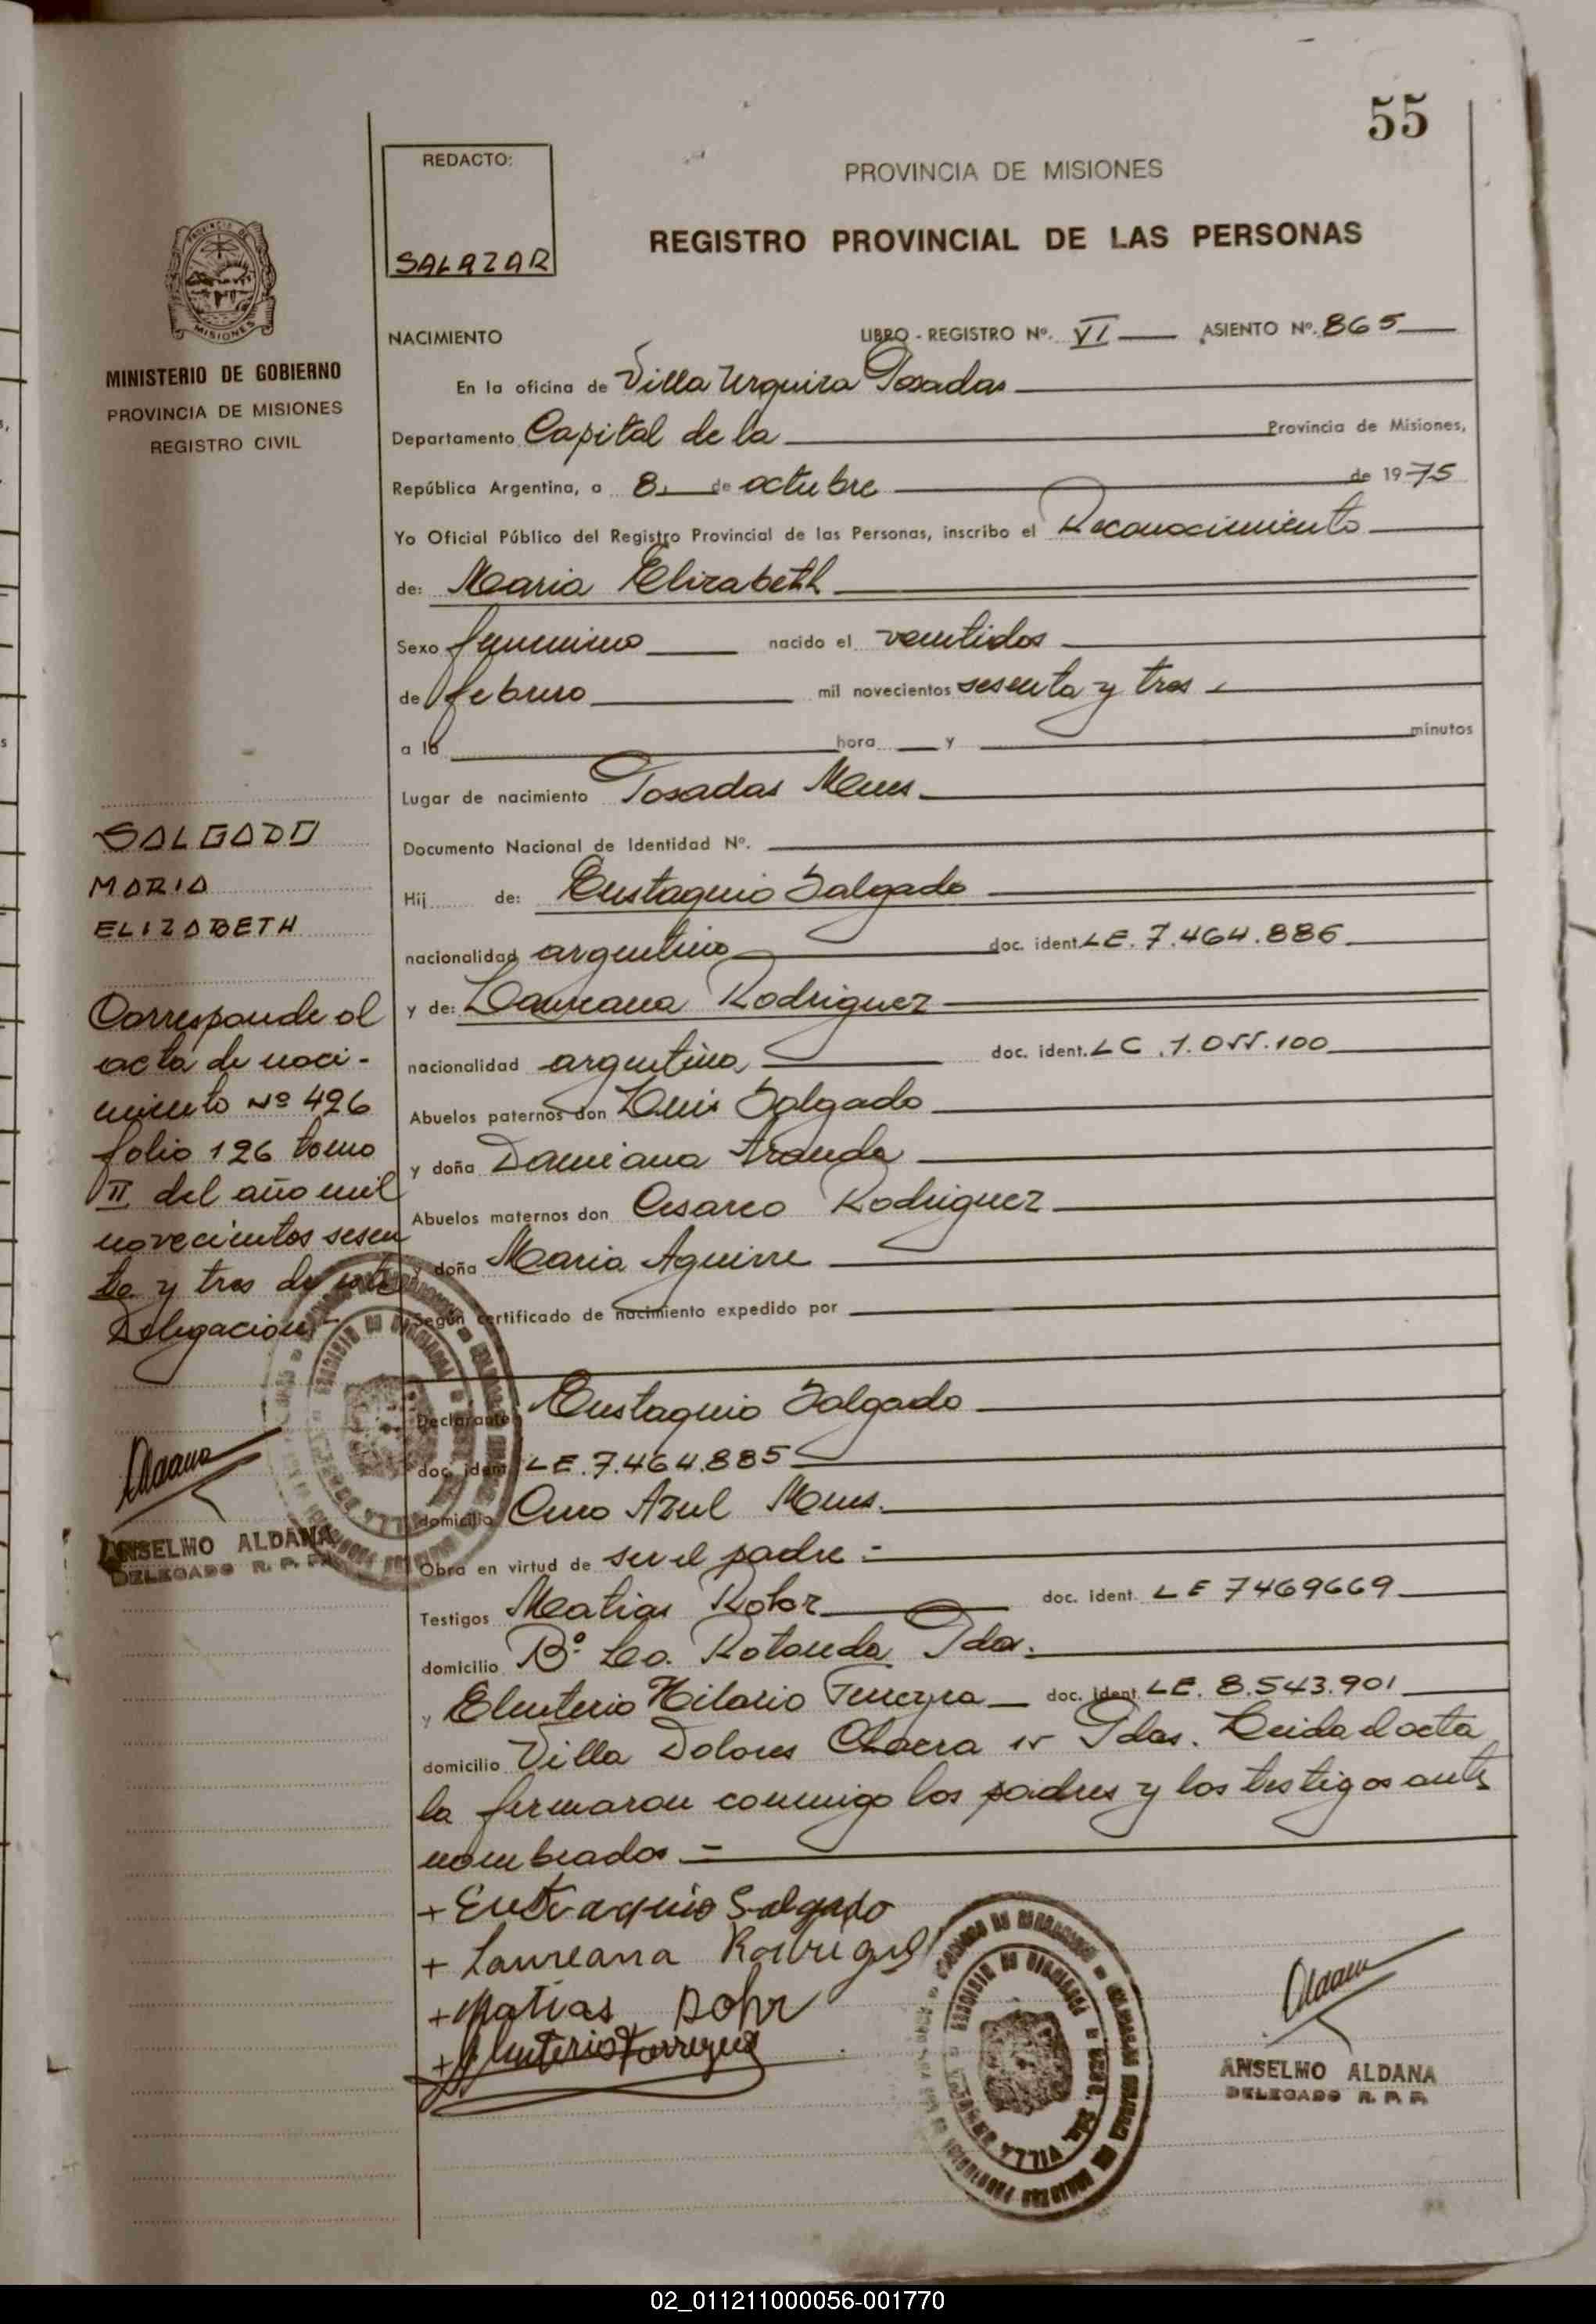 55
REDACTO:
SALAZAR
PROVINCIA DE MISIONES
REGISTRO PROVINCIAL DE LAS PERSONAS
MISIONES
MINISTERIO DE GOBIERNO
PROVINCIA DE MISIONES
REGISTRO CIVIL
NACIMIENTO LIBRO - REGISTRO Nº. VI ASIENTO Nº. 865
En la oficina de Villa Urquiza Posadas
Departamento Capital de la Provincia de Misiones,
República Argentina, a 8 de octubre de 1975
Yo Oficial Público del Registro Provincial de las Personas, inscribo el Reconocimiento
de: Maria Elizabeth
Sexo femenino nacido el veintidos
de febrero mil novecientos sesenta y tres
a la hora y minutos
Lugar de nacimiento Posadas Mnes
Documento Nacional de Identidad Nº.
Hij de: Eustaquio Salgado
nacionalidad argentino doc. ident. LE. 7.464.886
y de: Laureana Rodriguez
nacionalidad argentina doc. ident. LC. 1.055.100
Abuelos paternos don Luis Salgado
y doña Damiana Aranda
Abuelos maternos don Cesareo Rodriguez
y doña Maria Aguirre
Según certificado de nacimiento expedido por
Declarante Eustaquio Salgado
doc. ident. LE. 7.464.885
domicilio Cerro Azul Mnes.
Obra en virtud de ser el padre
Testigos Matias doc. ident. LE 7469669
domicilio Bº. La Rotonda Pdas.
y Eleuterio Hilario Ferreyra doc. ident. LE. 8.543.901
domicilio Villa Dolores Chacra 15 Pdas. Leida el acta
la firmaron conmigo los padres y los testigos ante
nombrados
+ Eustaquio Salgado
+ Laureana Rodriguez
+ Matias Rohr
+ Eleuterio Ferreyra
SALGADO
MARIA
ELIZABETH
Corresponde al
acta de naci-
miento Nº 426
folio 126 tomo
II del año mil
novecientos sesen
ta y tres de esta
Delegacion
Aldana
ANSELMO ALDANA
DELEGADO R. P. P.
Aldana
ANSELMO ALDANA
DELEGADO R. P. P.
02_011211000056-001770